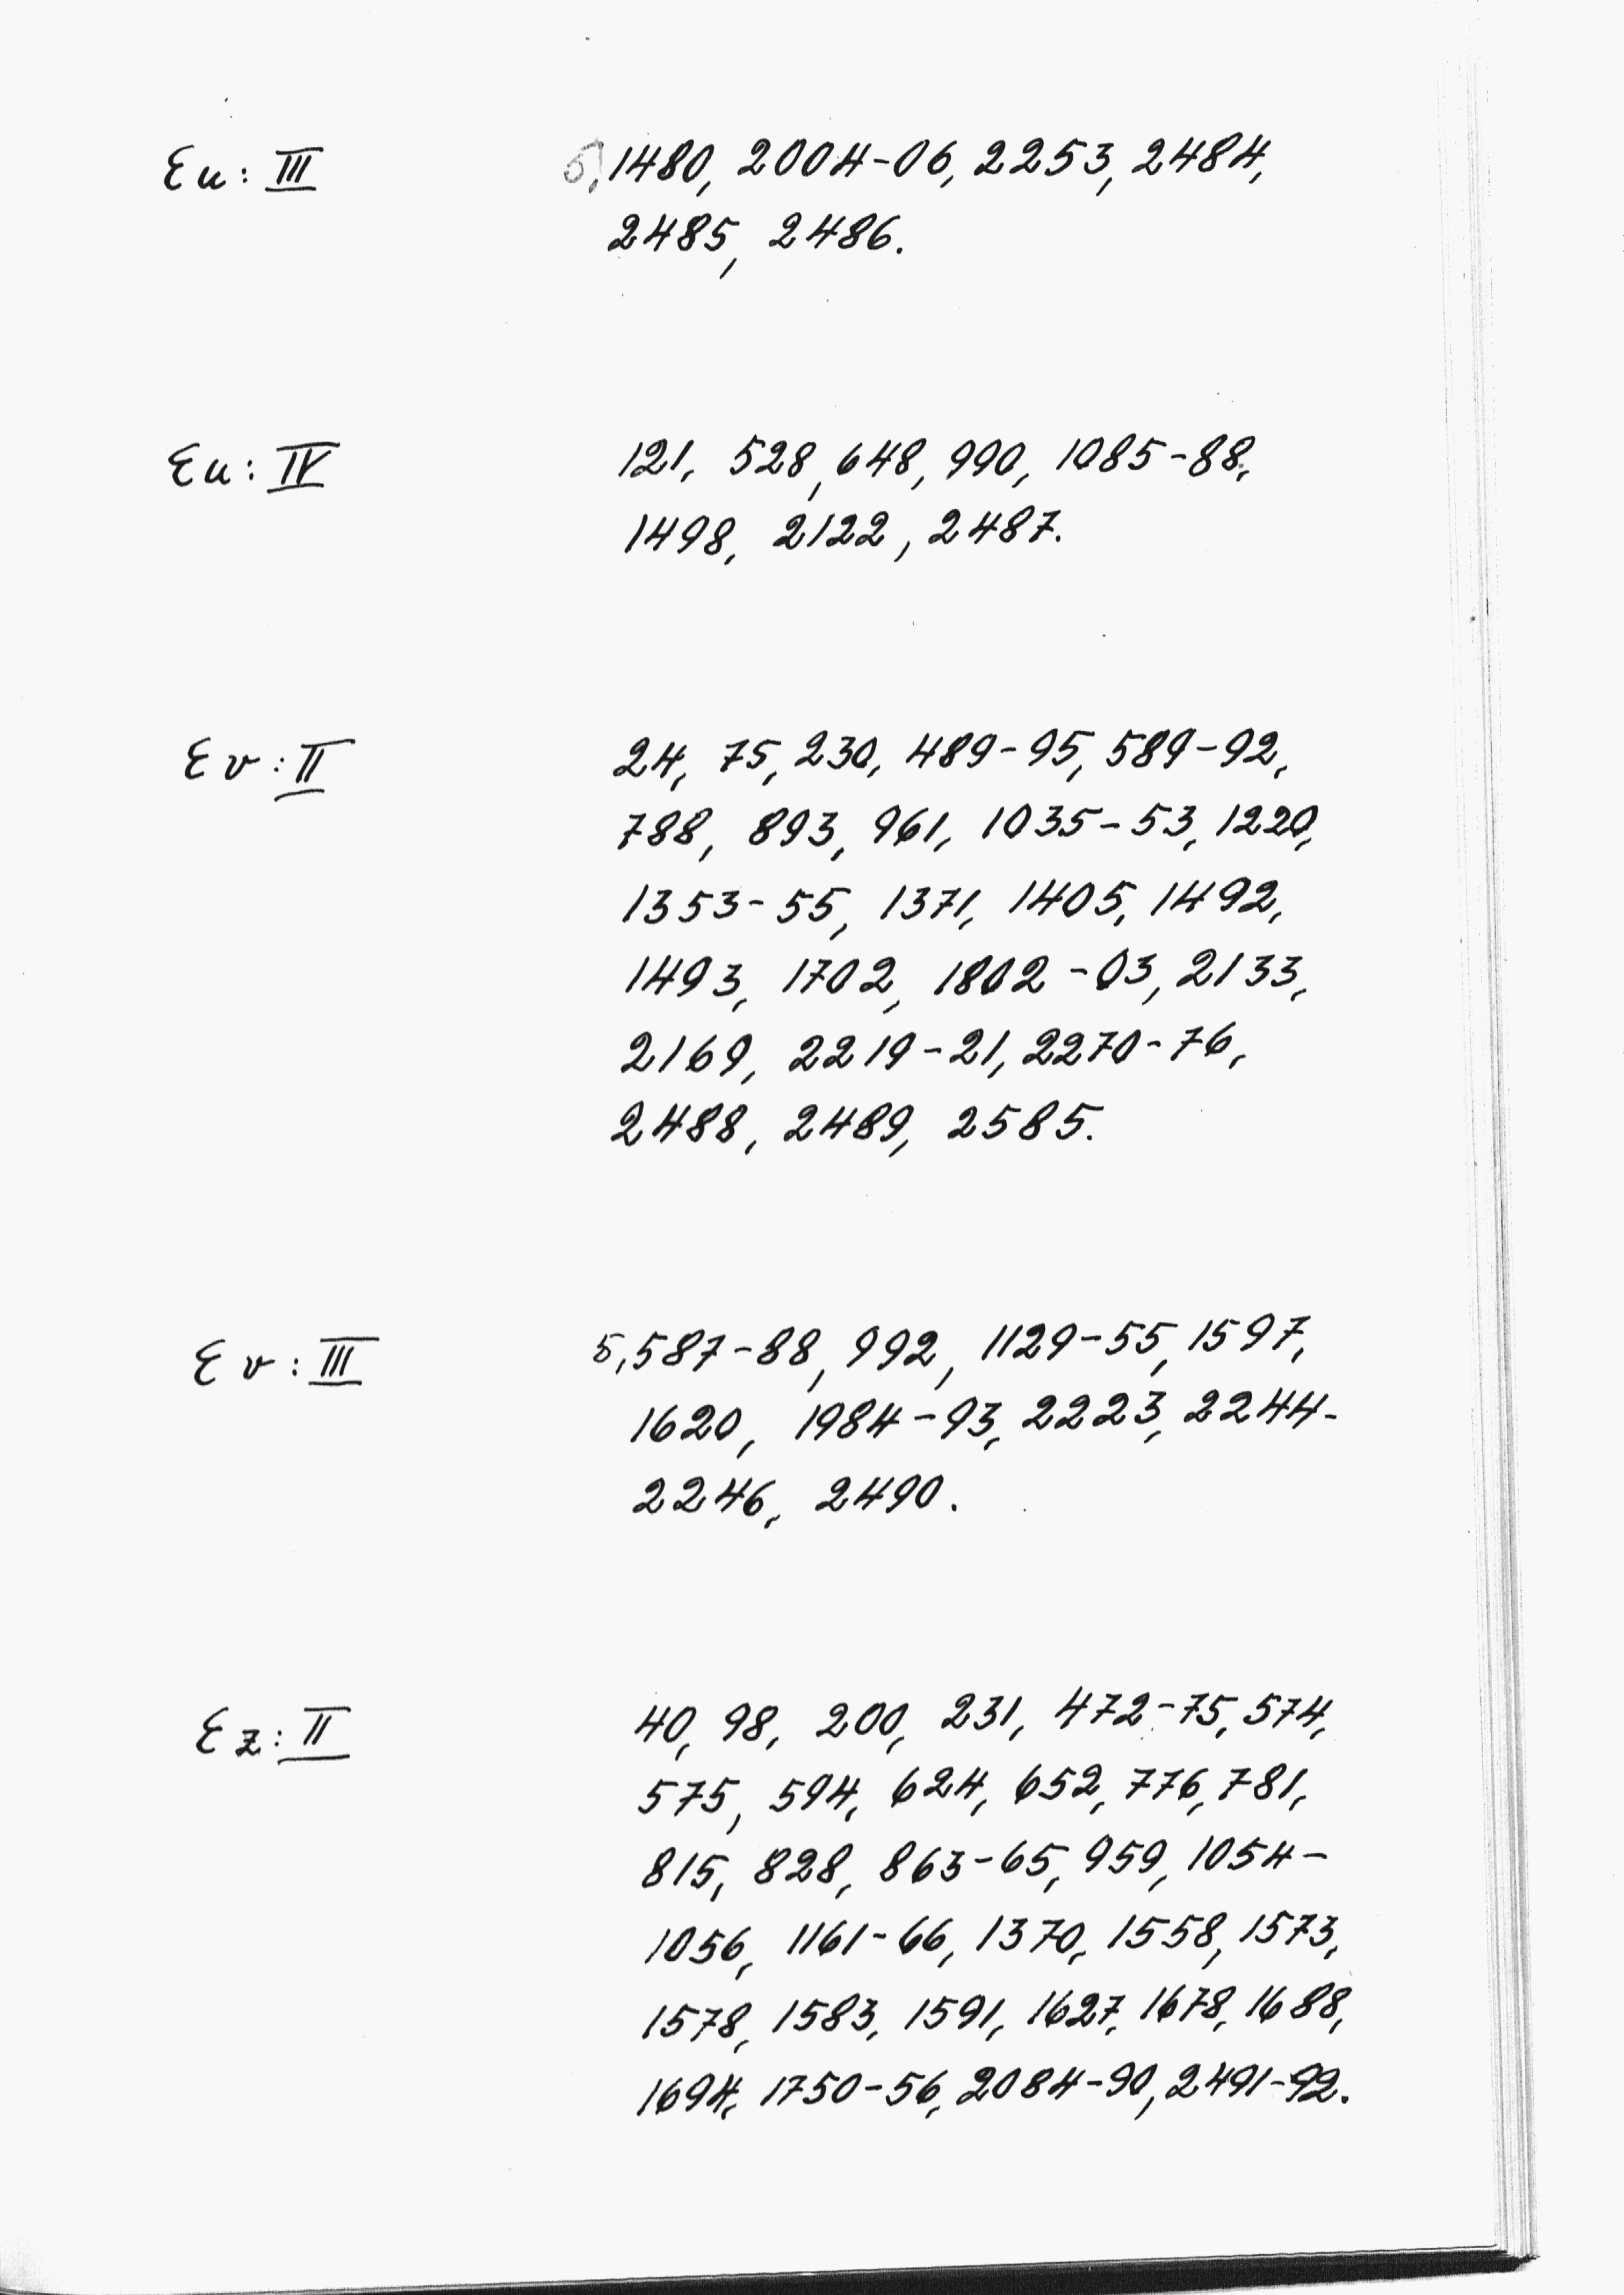 Eu: III 5, 1480, 2004-06, 2253, 2484,
2485, 2486.
Eu: IV 121, 528, 648, 990, 1085-88,
1498, 2122, 2487.
Ev: II 24, 75, 230, 489-95, 589-92,
788, 893, 961, 1035-53, 1220,
1353-55, 1371, 1405, 1492,
1493, 1702, 1802-03, 2133,
2169, 2219-21, 2270-76,
2488, 2489, 2585.
Ev: III 5, 587-88, 992, 1129-55, 1597,
1620, 1984-93, 2223, 2244-
2246, 2490.
Ez: II 40, 98, 200, 231, 472-75, 574,
575, 594, 624, 652, 776, 781,
815, 828, 863-65, 959, 1054-
1056, 1161-66, 1370, 1558, 1573,
1578, 1583, 1591, 1627, 1678, 1688,
1694, 1750-56, 2084-90, 2491-92.